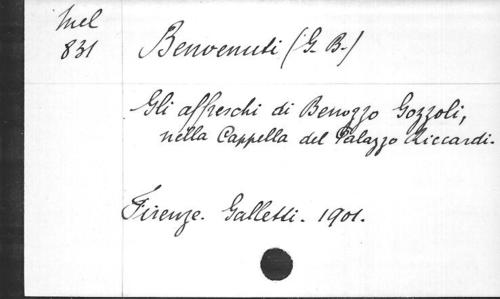 Mel
831
Benvenuti (G. B.)
Gli affreschi di Benozzo Gozzoli,
nella Cappella del Palazzo Riccardi.
Firenze. Galletti. 1901.